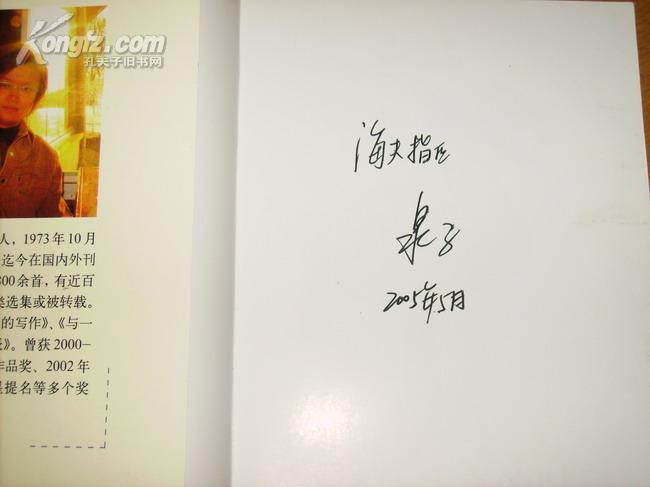 Kongfz.com
孔夫子旧书网
人，1973年10月
迄今在国内外刊
800余首，有近百
类选集或被转载。
的写作》、《与一
》。曾获2000-
作品奖、2002年
提名等多个奖
海夫指正
泉子
2005年5月